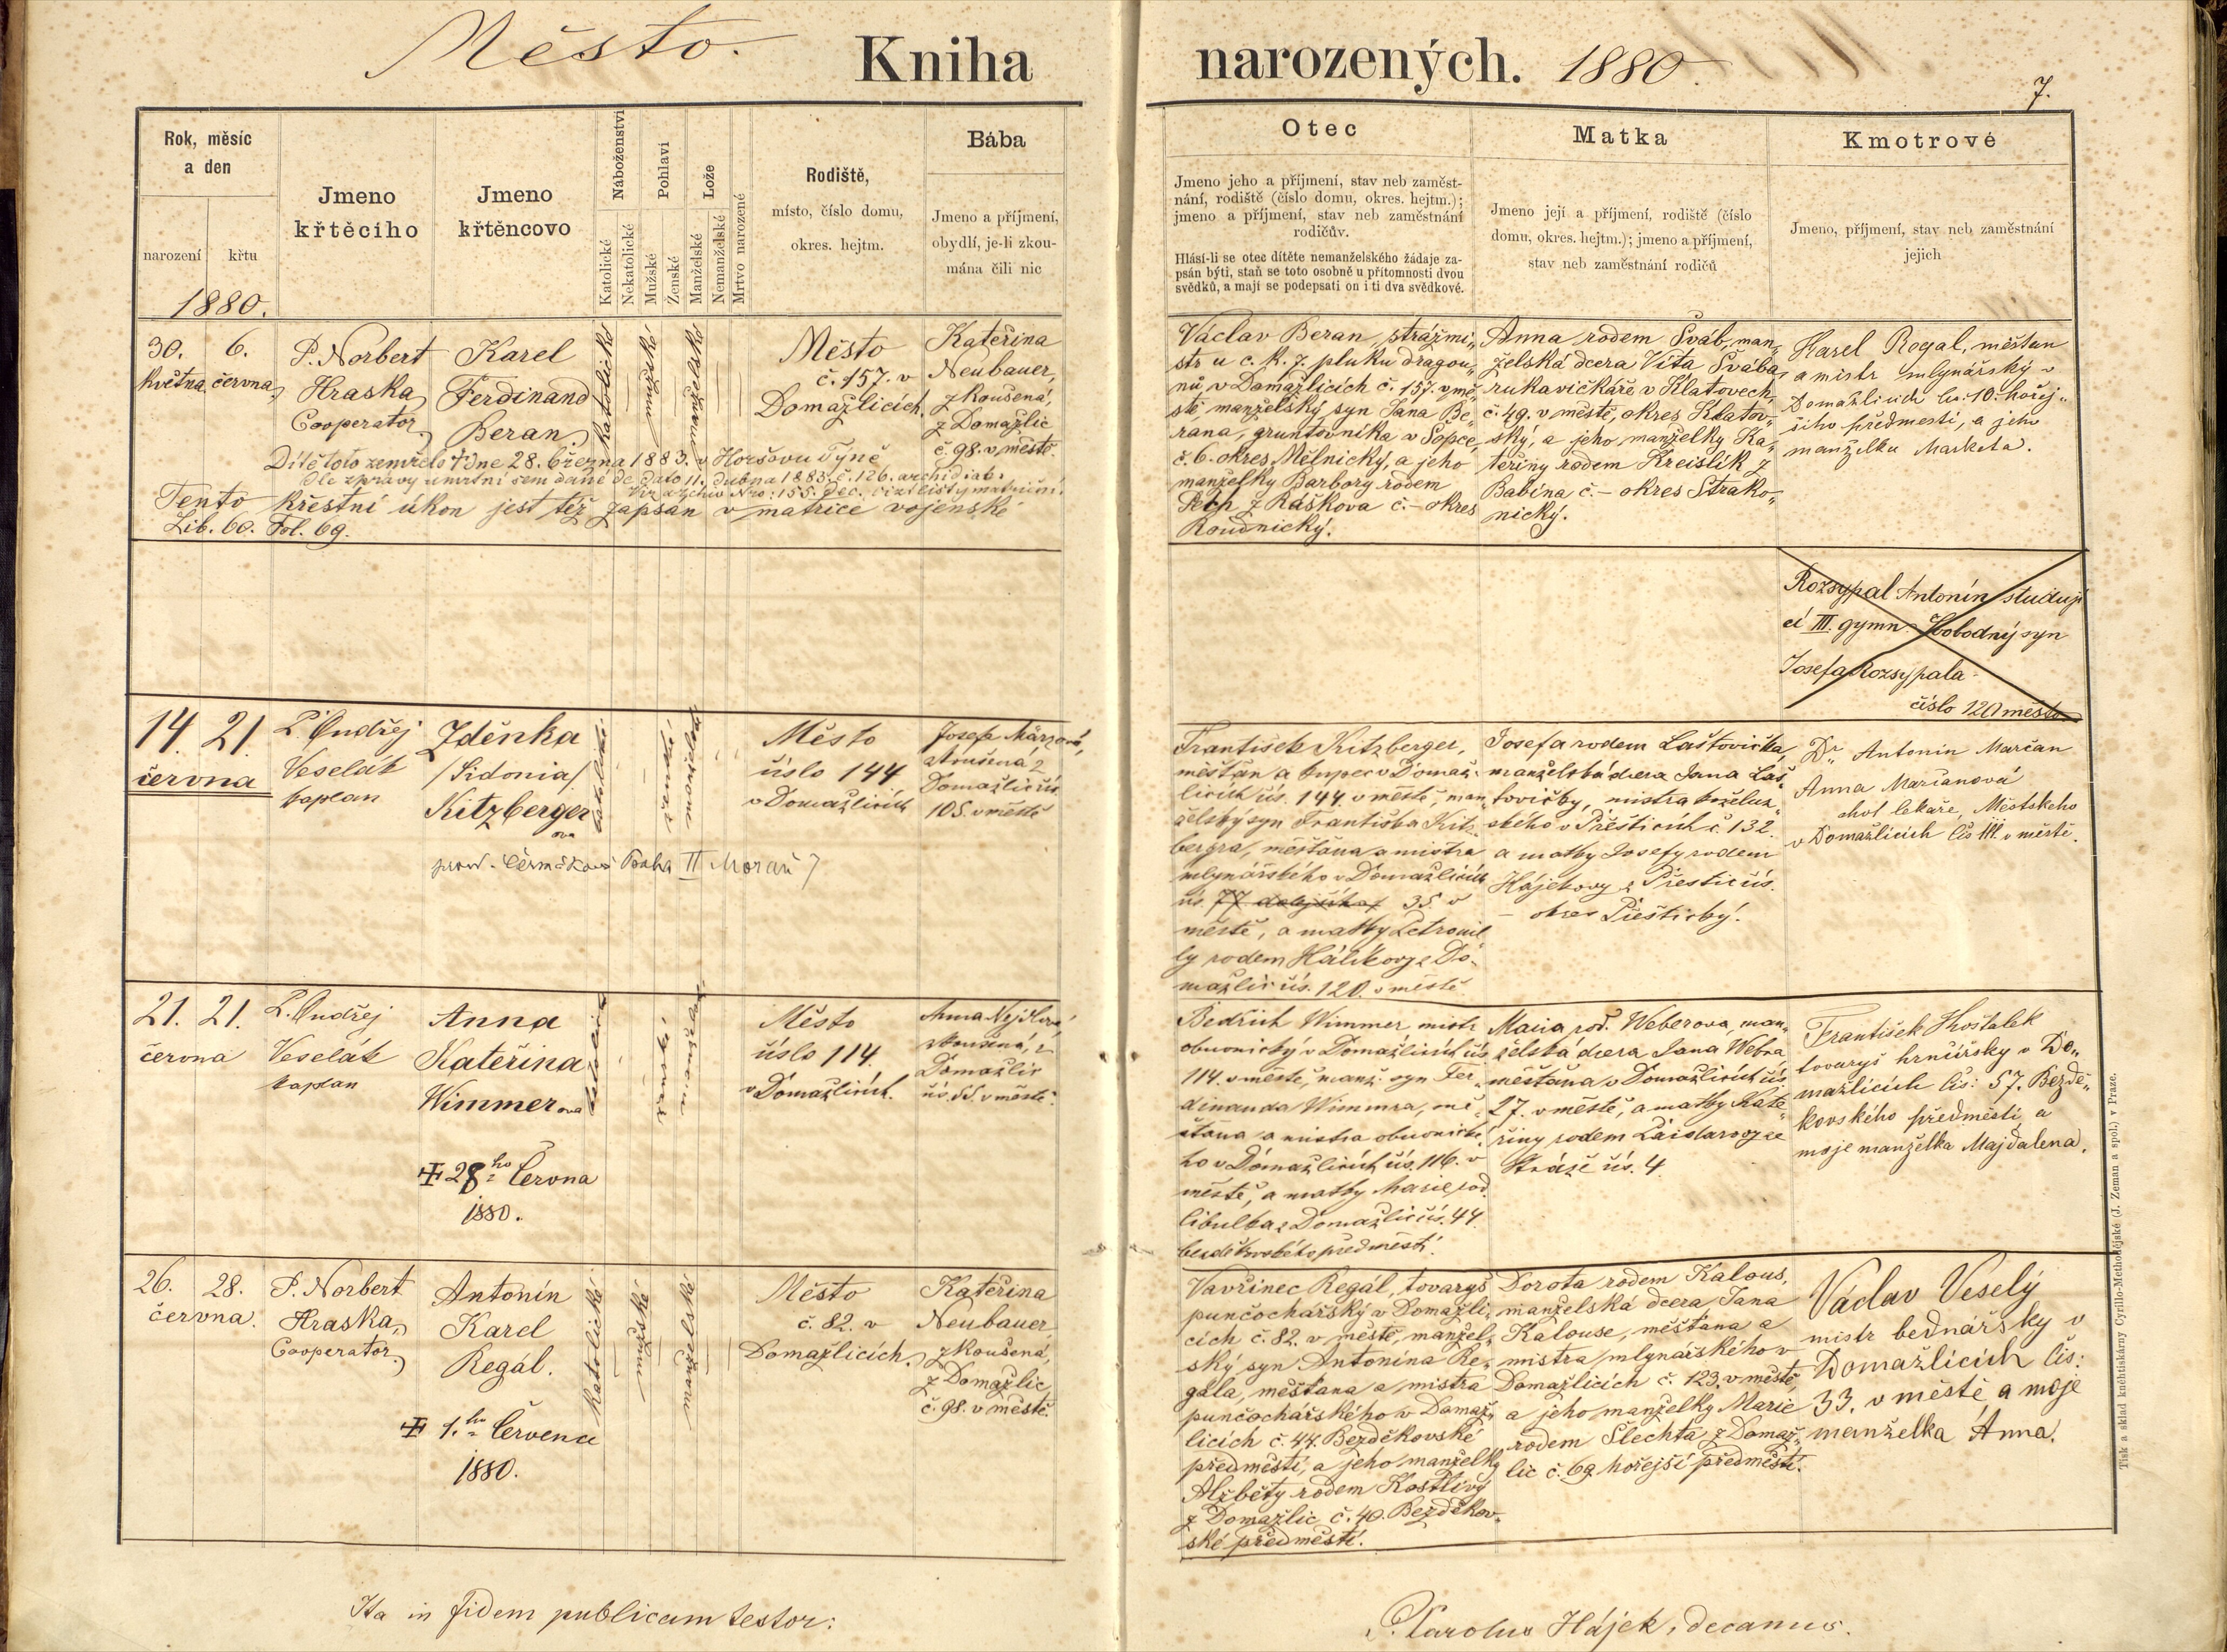 Město.
Kniha
narozených. 1880.
7.
Rok, měsíc
a den
narození
křtu
1880.
Jmeno
křtěcího
Jmeno
křtěncovo
Náboženství
Katolické
Nekatolické
Pohlaví
Mužské
Ženské
Lože
Manželské
Nemanželské
Mrtvo narozené
Rodiště,
místo, číslo domu,
okres. hejtm.
Bába
Jmeno a příjmení,
obydlí, je-li zkou-
mána čili nic
Otec
Jmeno jeho a příjmení, stav neb zaměst-
nání, rodiště (číslo domu, okres. hejtm.);
jmeno a příjmení, stav neb zaměstnání
rodičův.
Hlásí-li se otec dítěte nemanželského žádaje za-
psán býti, staň se toto osobně u přítomnosti dvou
svědků, a mají se podepsati on i ti dva svědkové.
Matka
Jmeno její a příjmení, rodiště (číslo
domu, okres. hejtm.); jmeno a příjmení,
stav neb zaměstnání rodičů
Kmotrové
Jmeno, příjmení, stav neb zaměstnání
jejich
30. 6.
května, června,
P. Norbert
Hraska,
Cooperator,
Karel
Ferdinand
Beran.
katolické
mužské
manželské
Město
č. 157. v
Domažlicích,
Kateřina
Neubauer,
zkoušená,
z Domažlic
č. 98. v městě.
Dítě toto zemřelo † dne 28. března 1883. v Horšovu Týně
dle zprávy úmrtní sem dané de dato 11. dubna 1883. č. 126. archidiak.
Tento křestní úkon jest též zapsán v matrice vojenské
Lib. 60. Fol. 69.
Václav Beran, strážmi-
str u c. k. 7. pluku dragou-
nů v Domažlicích č. 157. v mě-
stě manželský syn Jana Be-
rana, gruntovníka v Sopce,
č. 6. okres Mělnický, a jeho
manželky Barbory rodem
z Ráškova č. – okres
Roudnický.
Anna rodem Šváb, man-
želská dcera Víta Švába,
rukavičkáře v Klatovech,
č. 49. v městě, okres Klatov-
ský, a jeho manželky Ka-
teřiny rodem Kreislík z
Babína č. – okres Strako-
nický.
Karel Rogal, měštan
a mistr mlynářský v
Domažlicích čís. 10. hořej-
šího předmestí, a jeho
manželka Marketa.
Rozsypal Antonín studují
cí III. gymn. Svobodný syn
Josefa Rozsypala
číslo 120 město
14. 21.
června
P. Ondřej
Veselák
kaplan
Zděnka
/Sidonia/
Kitzberger
ova
katolické
ženské
manželské
Město
číslo 144
v Domažlicích
Josefa
zkoušená z
Domažlic čís.
105. v městě
Čermákova Praha II Moraň 7
František Kitzberger,
měštan a kupec v Domaž-
licích čís. 144. v městě, man-
želský syn Františka Kitz-
bergra, měštana a mistra
mlynářského v Domažlicích
čís. 77 dolejšího 35. v
městě, a matky Petronil-
ly rodem Hálkovy z Do-
mažlic čís. 120. v městě.
Josefa rodem Laštovička,
manželská dcera Jana Laš-
tovičky, mistra koželuž-
ského v Přešticích č. 132.
a matky Josefy rodem
Hájkovy z Přeštic čís.
– okres Přeštický.
Dr. Antonín Marčan
Anna Marčanová
choť lekaře, Městskeho
v Domažlicích čís 111. v městě.
21. 21.
června
P. Ondřej
Veselák
kaplan
Anna
Kateřina
Wimmerova
✠ 28ho Června
1880.
katolické
ženské
manželské
Město
číslo 114.
v Domažlicích.
Anna
zkoušená, z
Domažlic
čís. 55 v městě.
Bedřich Wimmer mistr
obuvnický v Domažlicích čís
114. v městě, manž. syn Fer-
dinanda Wimmra, mě-
štana a mistra obuvnické-
ho v Domažlicích čís. 116. v
městě, a matky Marie rod.
Cibulka z Domažlic čís. 44
bezděkovského předměstí.
Marie rod. Weberova, man-
želská dcera Jana Webra
měštana v Domažlicích čís.
27. v městě, a matky Kate-
řiny rodem ze
Stráže čís. 4.
František Hoštalek
tovaryš hrnčířsky v Do-
mažlicích čís: 57. Bezdě-
kovského předměstí a
moje manželka Majdalena.
26. 28.
června.
P. Norbert
Hraska,
Cooperator,
Antonín
Karel
Regál.
✠ 1.ho Července
1880.
katolické
mužské
manželské
Město
č. 82. v
Domažlicích,
Kateřina
Neubauer
zkoušená,
z Domažlic
č. 98. v městě.
Vavřinec Regál, tovaryš
punčochářský v Domažli-
cích č. 82. v městě, manžel-
ský syn Antonína Re-
gála, měšťana a mistra
punčochářského v Domaž-
licích č. 44. Bezděkovské
předměstí, a jeho manželky
Alžběty rodem Kostlivý
z Domažlic č. 40. Bezděkov-
ské předměstí.
Dorota rodem Kalous,
manželská dcera Jana
Kalouse, měšťana a
mistra mlynářského v
Domažlicích č. 123. v městě,
a jeho manželky Marie
rodem Šlechta, z Domaž-
lic č. 69 hořejší předměstí.
Václav Veselý
mistr bednářsky v
Domažlicích čís:
33. v městě a moje
manželka Anna.
Ita in fidem publicam testor:
P. Carolus Hájek, decanus.
Tisk a sklad knihtiskárny Cyrillo-Methodějské (J. Zeman a spol.) v Praze.